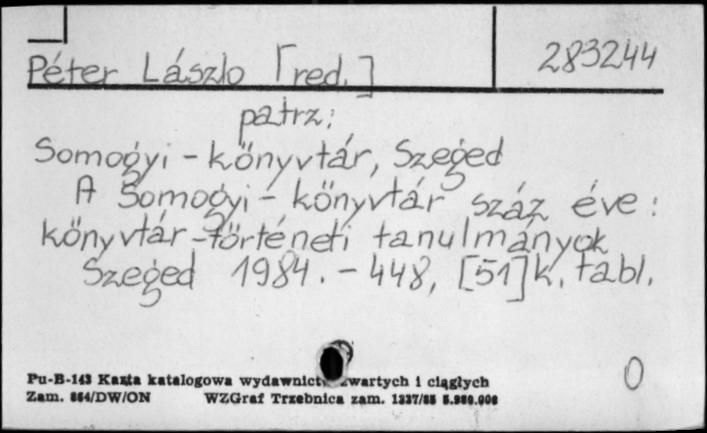 Péter László [red.]
283244
patrz:
Somogyi - könyvtár, Szeged
A Somogyi - könyvtár száz éve :
könyvtár-történeti tanulmányok
Szeged 1984. - 448, [51] k. tabl.
0
Pu-B-143 Karta katalogowa wydawnictw zwartych i ciągłych
Zam. 864/DW/ON WZGraf Trzebnica zam. 1337/85